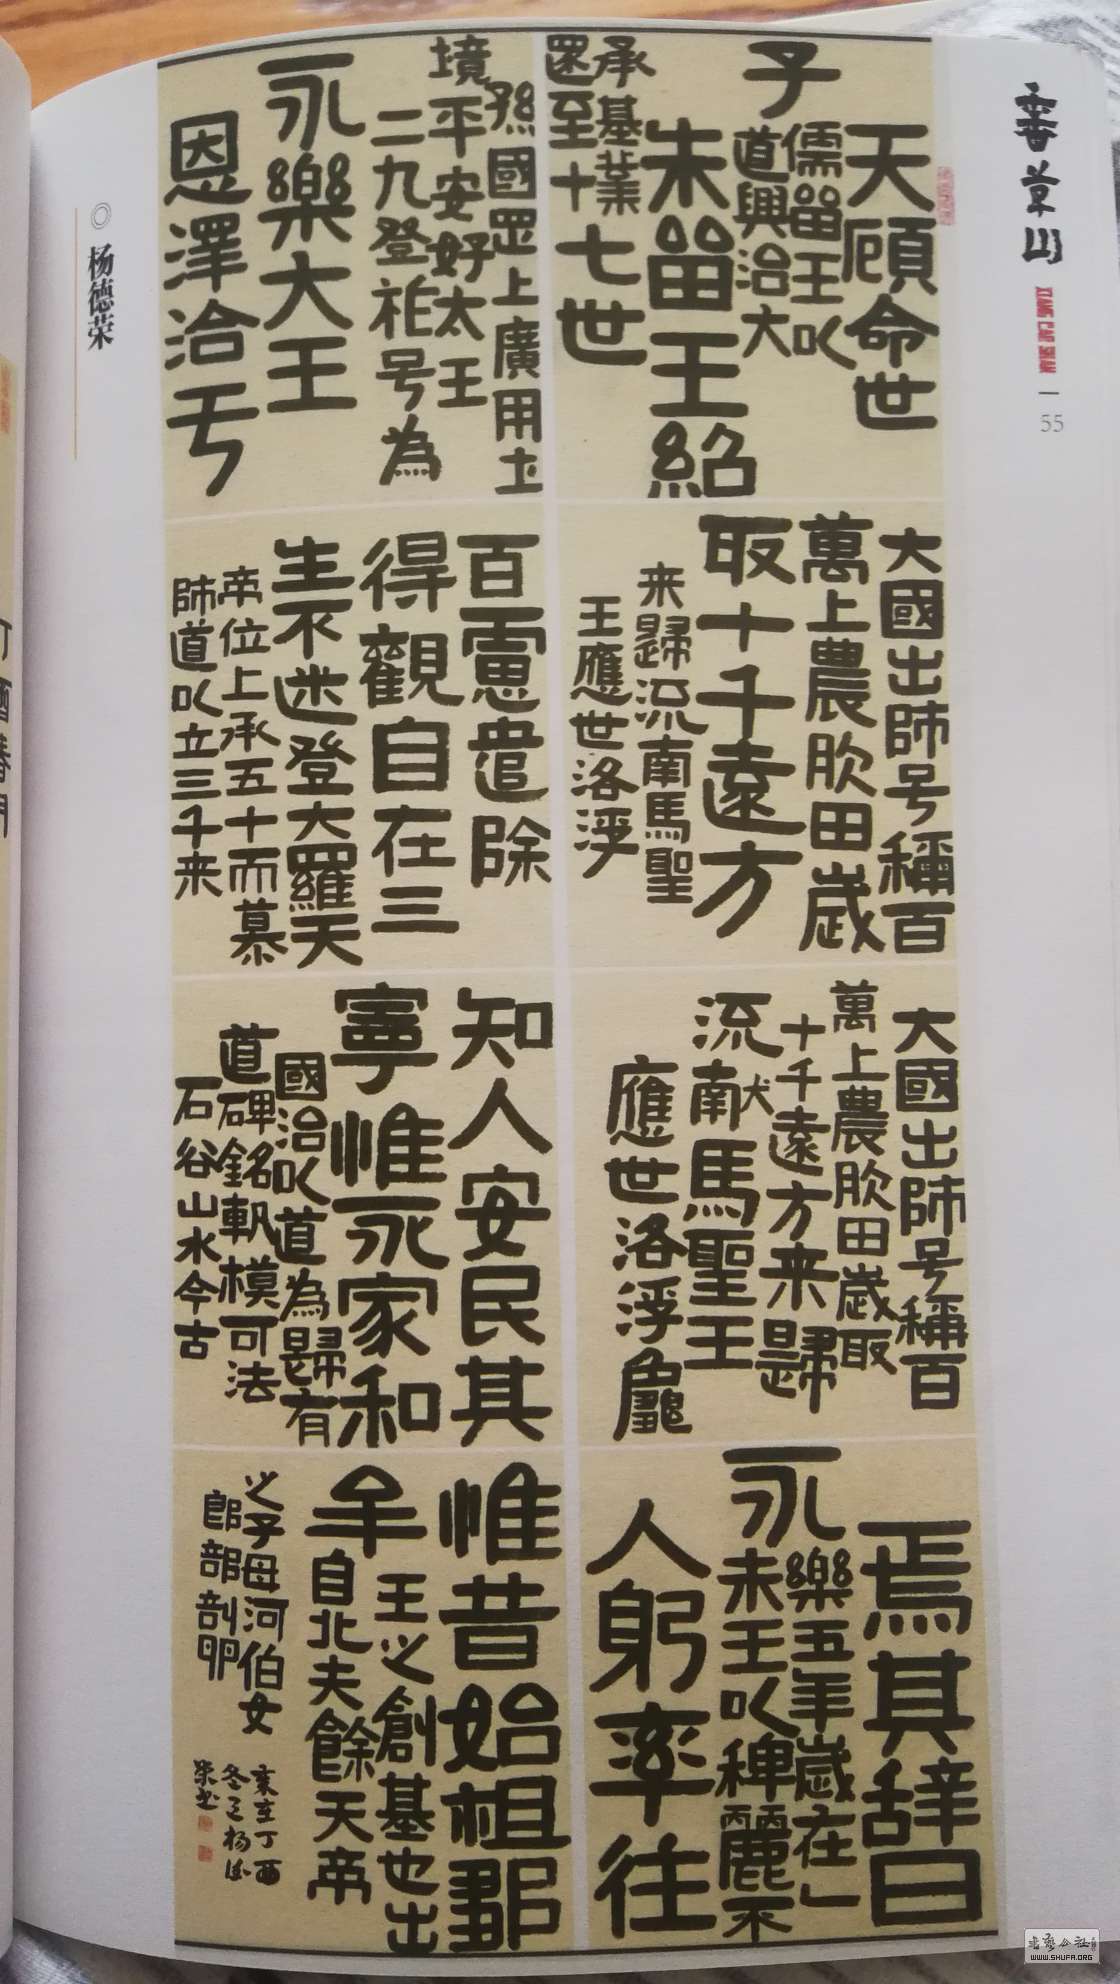 香草山
XIANG CAO SHAN
55
天顧命世
子
儒留王以
道興治大
朱留王紹
承基業
還至十七世
孫國罡上廣用土
境平安好太王
二九登祚号為
永樂大王
恩澤洽于
大國出師号稱百
萬上農肷田歲
取十千遠方
来歸流南馬聖
王應世洛浮
百慮遣除
得觀自在三
生不迷登大羅天
帝位上承五十而慕
師道以立三千来
大國出師号稱百
萬上農肷田歲取
十千遠方来歸
流犬南馬聖王
應世洛浮龜
知人安民其
寧惟永家和
國治以道為歸有
道碑銘軌模可法
石谷山水今古
焉其辞曰
永樂五年歲在乙
未王以稗麗不
人躬率往
惟昔始祖鄒
牟王之創基也出
自北夫餘天帝
之子母河伯女
郎部剖卵
歲在丁酉
冬月杨德
荣书
◎ 杨德荣
WWW.SHUFA.ORG